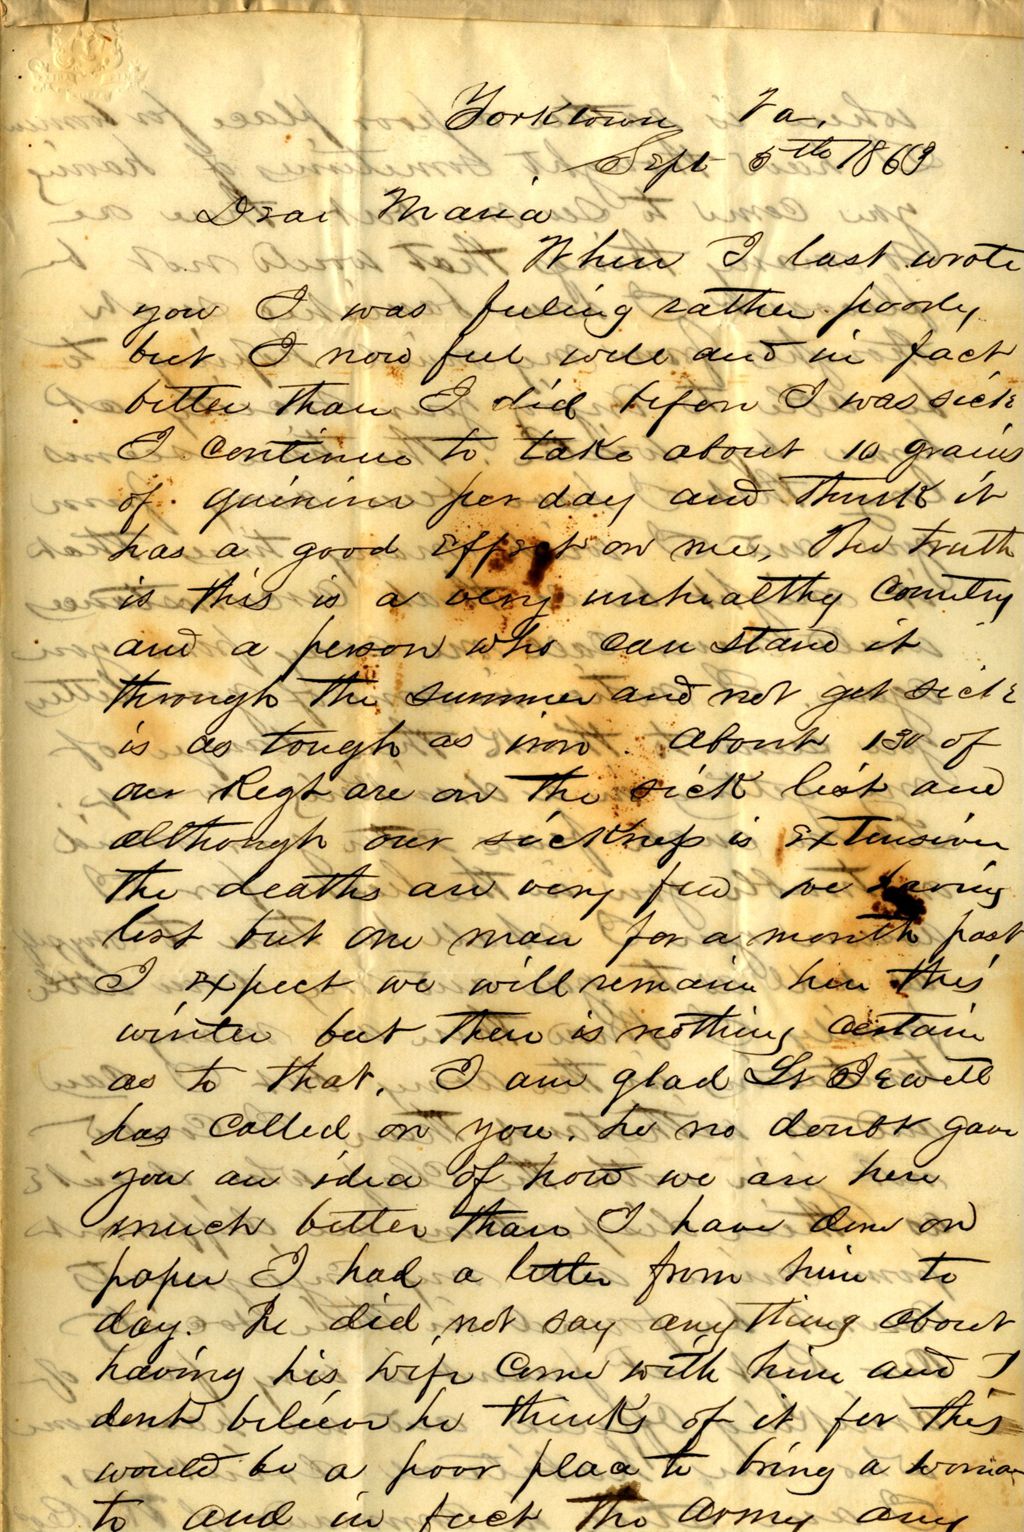 Yorktown Va.
Sept 5th 1863
Dear Maria
When I last wrote
you I was feeling rather poorly
but I now feel well and in fact
better than I did before I was sick
I continue to take about 10 grains
of quinine per day and think it
has a good effect on me, The truth
is this is a very unhealthy Country
and a person who can stand it
through the summer and not get sick
is as tough as iron. About 130 of
our Regt are on the sick list and
although our sickness is extensive
the deaths are very few we having
lost but one man for a month past
I expect we will remain here this
winter but there is nothing certain
as to that. I am glad Lt Jewell
has called on you. he no doubt gave
you an idea of how we are here
much better than I have done on
paper I had a letter from him to
day. he did not say anything about
having his wife come with him and I
dont believe he thinks of it for this
would be a poor place to bring a woman
to and in fact the army any